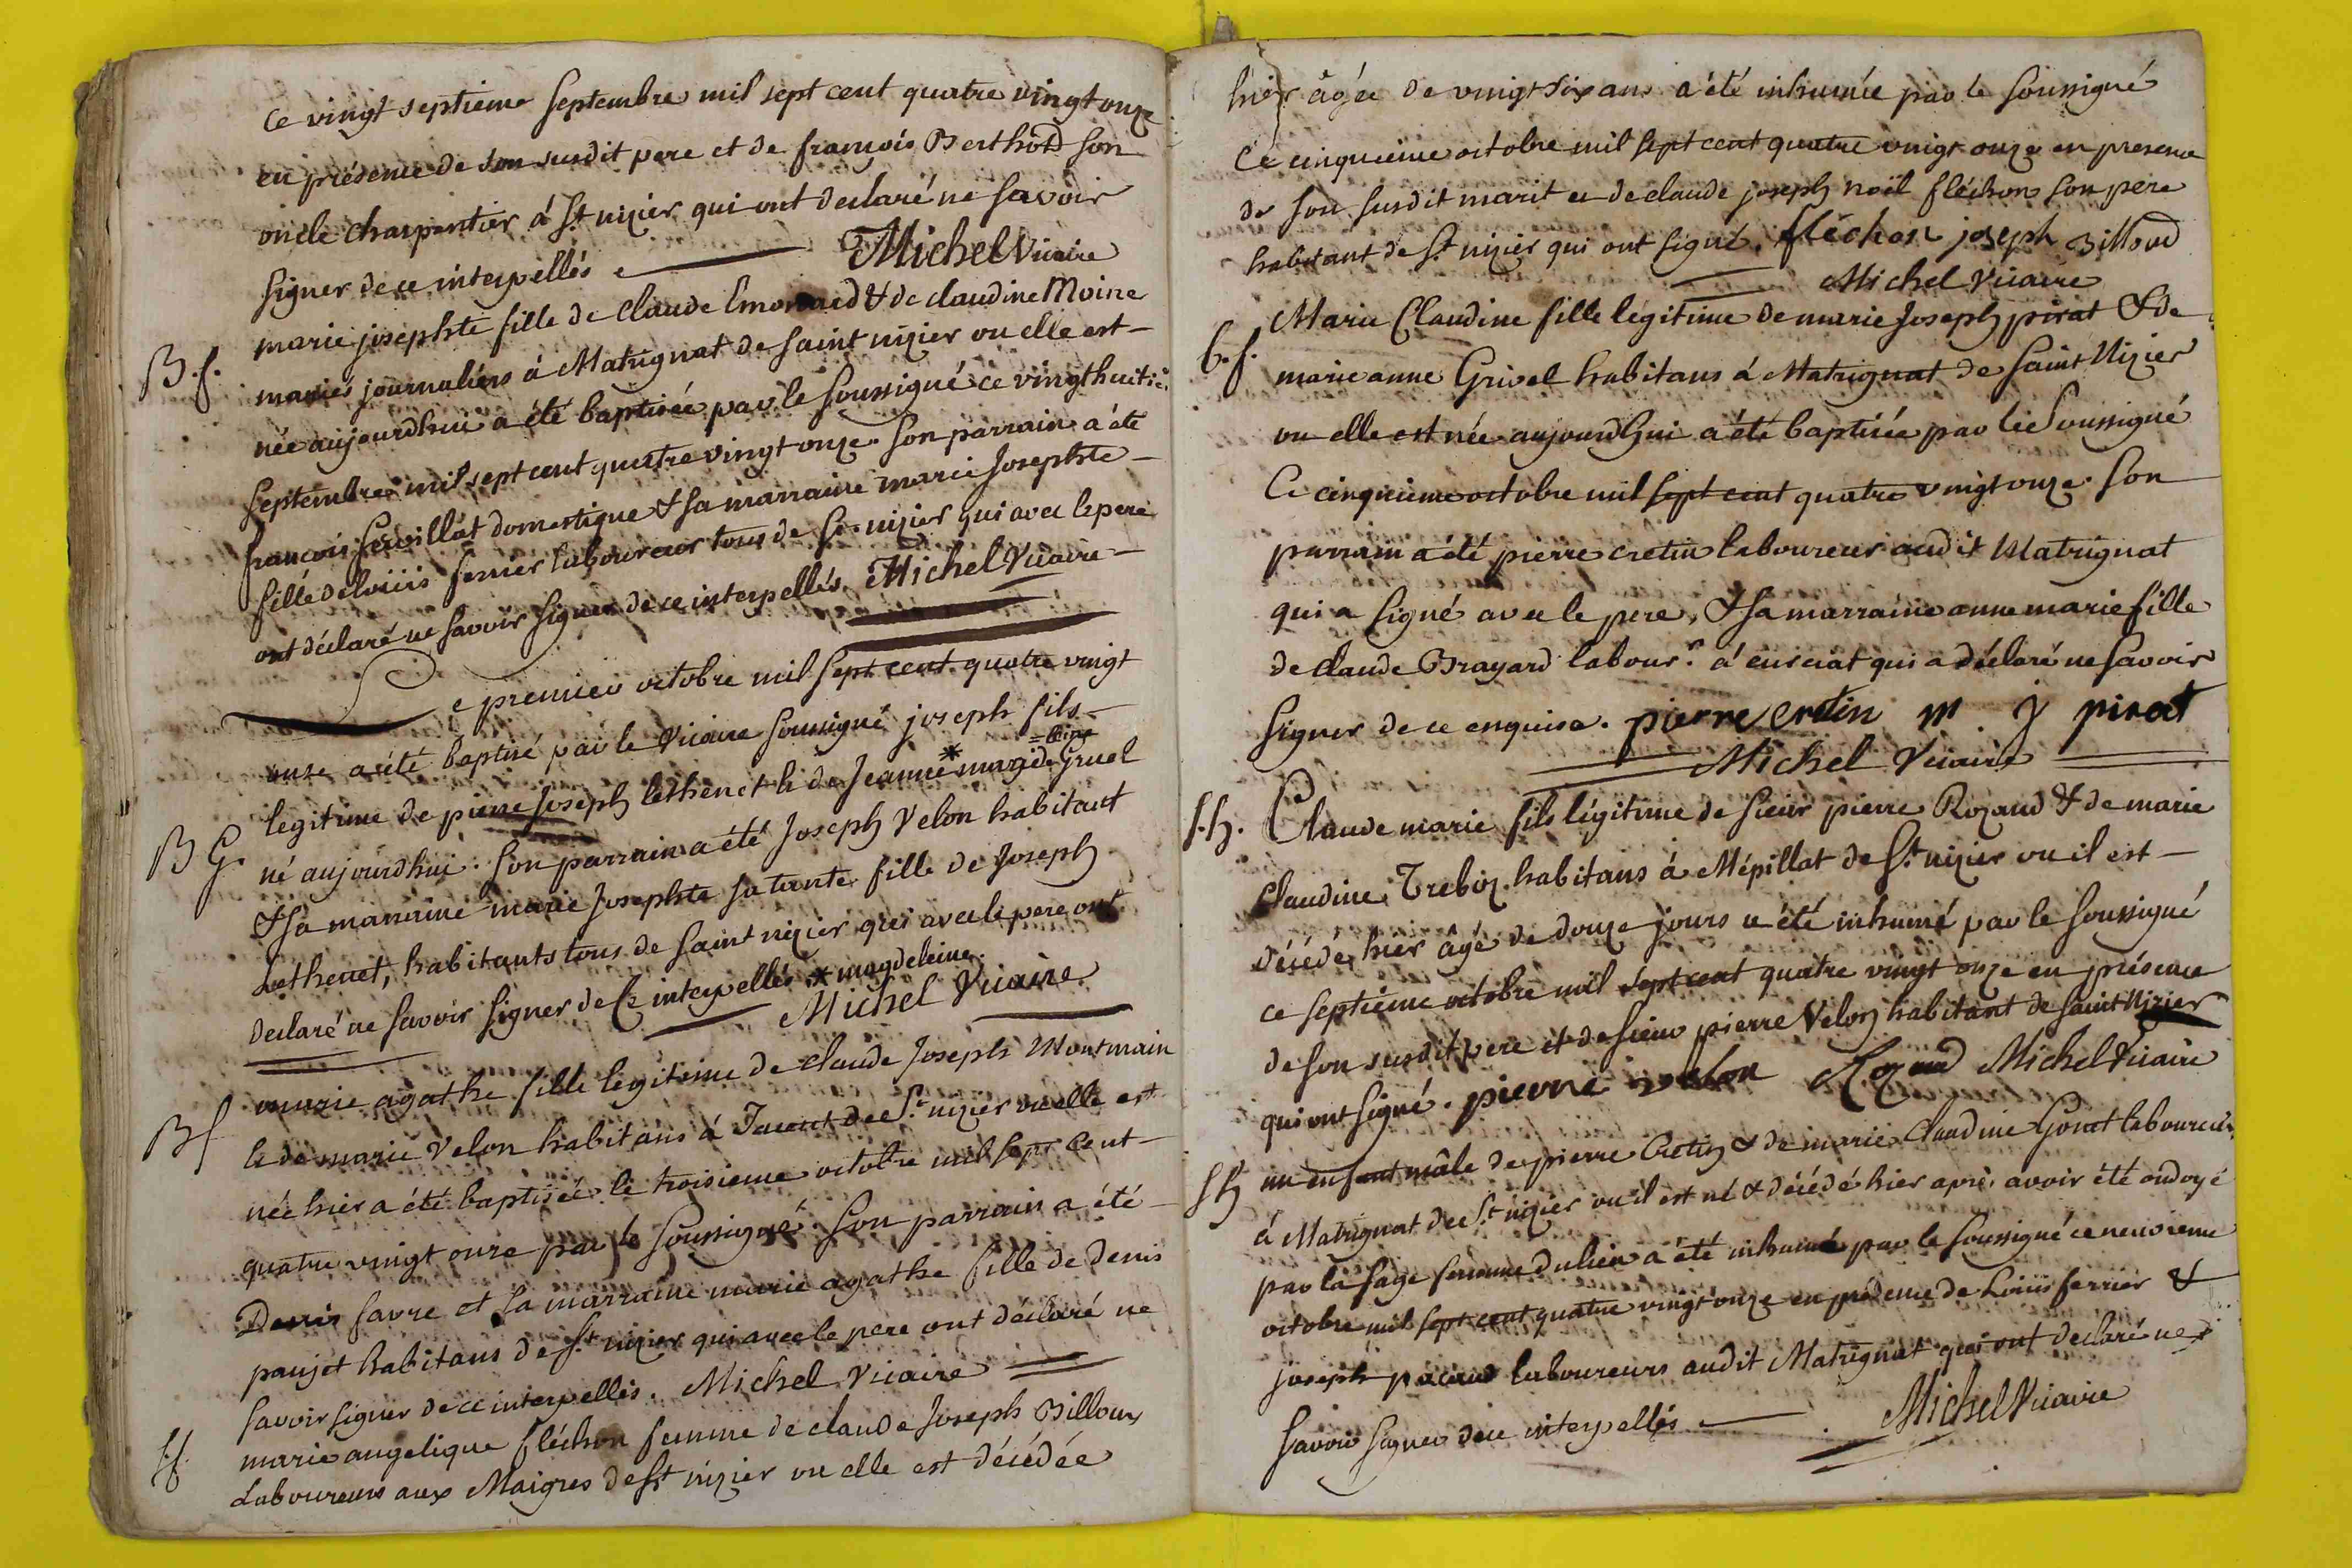 ce vingt septieme Septembre mil sept cent quatre vingt onze
en présence de son susdit pere et de françois Berthod son
oncle charpentier à St nizier qui ont declaré ne savoir
signer de ce interpellés Michel Vicaire
B. f. marie josephte fille de Claude Emonard & de claudine Moine
mariés journaliers à Matrignat de saint nizier ou elle est
née aujourdhui a été baptisée par le soussigné ce vingt huitie.
Septembre mil sept cent quatre vingt onze. son parrain a été
francois servillat domestique & sa marraine marie Josephte
fille de loüis ferrier laboureur tous de St. nizier qui avec le pere
ont déclaré ne savoir signer de ce interpellés Michel Vicaire
Le premier octobre mil sept cent quatre vingt
onze a été baptisé par le Vicaire soussigné joseph fils
B G. legitime de pierre Joseph lethenet & de Jeanne * Gruel
né aujourdhui. son parrain a été Joseph Velon habitant
& sa marraine marie Josephte sa tante fille de Joseph
Lethenet, habitants tous de saint nizier qui avec le pere ont
declaré ne savoir signer de ce interpellés * magdeleine.
Michel Vicaire
B f marie agathe fille legitime de claude Joseph Montmain
& de marie Velon habitans à de St nizier ou elle est
née hier a été baptisée le troisieme octobre mil sept cent
quatre vingt onze par le soussigné. son parrain a été
Denis favre et sa marraine marie agathe fille de Denis
paujet habitans de St nizier qui avec le pere ont déclaré ne
savoir signer de ce interpellés. Michel Vicaire
S.f. marie angelique fléchon femme de claude Joseph Billoud
Laboureurs aux Maigres de St nizier ou elle est décédée
hier âgée de vingt six ans a été inhumée par le soussigné
Ce cinquième octobre mil sept cent quatre vingt onze en presence
de son susdit marit et de claude joseph noël fléchon son pere
habitant de St nizier qui ont signé. fléchon joseph Billoud
Michel Vicaire
b. f. Marie Claudine fille légitime de marie Joseph pirat & de
marie anne Grivel habitans à Matrignat de Saint Nizier
ou elle est née aujourdhui a été baptisée par le Soussigné
Ce cinquieme octobre mil sept cent quatre vingt onze. Son
parrain a été pierre cretin laboureur audit Matrignat
qui a signé avec le pere, & sa marraine anne marie fille
de claude Brayard labour.r à curciat qui a déclaré ne savoir
signer de ce enquise. pierre cretin m j pirat
Michel Vicaire
S.h. Claude marie fils légitime de sieur pierre Rozand & de marie
Claudine Treboz habitans à Mépillat de St. nizier ou il est
décédé hier âgé de douze jours a été inhumé par le soussigné
ce septième octobre mil sept cent quatre vingt onze en présence
de son susdit pere et de sieur pierre Velon habitant de saint Nizier
qui ont signé. pierre velon Rozand Michel Vicaire
S h un enfant mâle de pierre Cretin & de marie Claudine Gonat laboureurs
à Matrignat de St nizier ou il est né & décédé hier après avoir été ondoyé
par la sage femme du lieu a été inhumé par le soussigné ce neuvieme
octobre mil sept cent quatre vingt onze en présence de Loüis ferrier &
joseph pacaud laboureurs audit Matrignat qui ont declaré ne
savoir signer de ce interpellés. Michel Vicaire